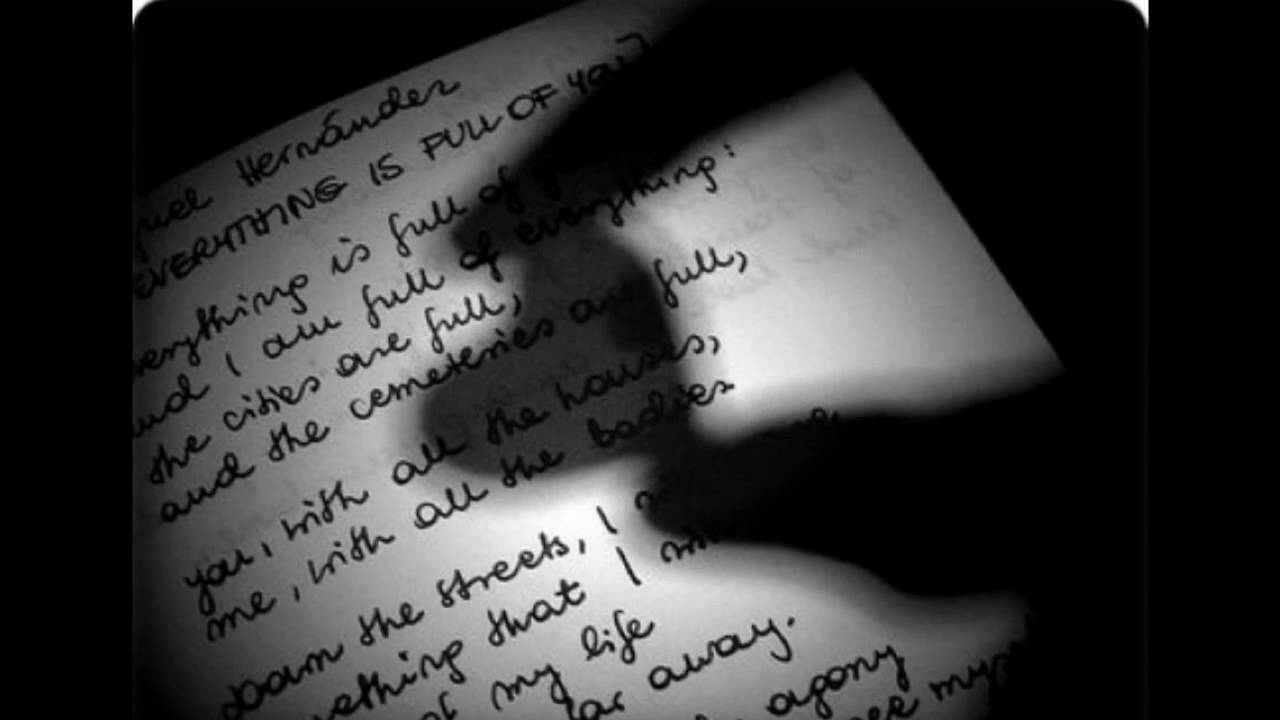 Hernández
EVERYTHING IS FULL OF YOU
everything is full of
and I am full of everything:
the cities are full,
and the cemeteries are full,
you, with all the houses,
me, with all the bodies
down the streets, I
something that I
of my life
far away.
agony